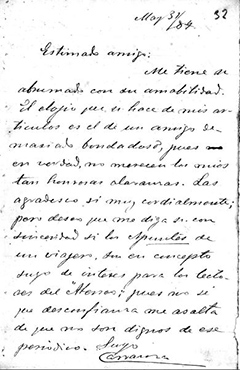 32
May 31/84
Estimado amigo:
Me tiene ud
abrumado con su amabilidad.
El elogio que ud hace de mis ar-
tículos es el de un amigo de-
masiado bondadoso, pues
en verdad, no merecen los mios
tan honrosas alabanzas. Las
agradezco si muy cordialmente;
pero deseo que me diga ud con
sinceridad si los Apuntes de
un viajero, son en concepto
suyo de interes para los lecto-
res del; pues no sé
que desconfianza me asalta
de que no son dignos de ese
periódico. Suyo